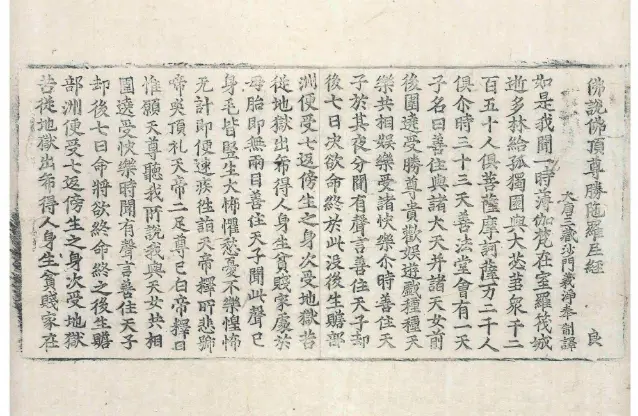 佛說佛頂尊勝陁羅尼經
大唐三藏沙門義淨奉制譯 良
如是我聞一時薄伽梵在室羅筏城
逝多林給孤獨園與大苾芻衆千二
百五十人俱菩薩摩訶薩万二千人
俱尒時三十三天善法堂會有一天
子名曰善住與諸大天并諸天女前
後圍遶受勝尊貴歡娛遊戲種種天
樂共相娛樂受諸快樂尒時善住天
子於其夜分聞有聲言善住天子却
後七日決欲命終於此没後生贍部
洲便受七返傍生之身次受地獄苦
從地獄出希得人身生貧賤家處於
母胎即無兩目善住天子聞此聲已
身毛皆竪生大怖懼愁憂不樂惶怖
无計即便速疾往詣天帝釋所悲號
啼哭頂礼天帝二足尊已白帝釋曰
惟願天尊聽我所說我與天女共相
圍遶受快樂時聞有聲言善住天子
却後七日命將欲終命終之後生贍
部洲便受七返傍生之身次受地獄
苦從地獄出希得人身生貧賤家在